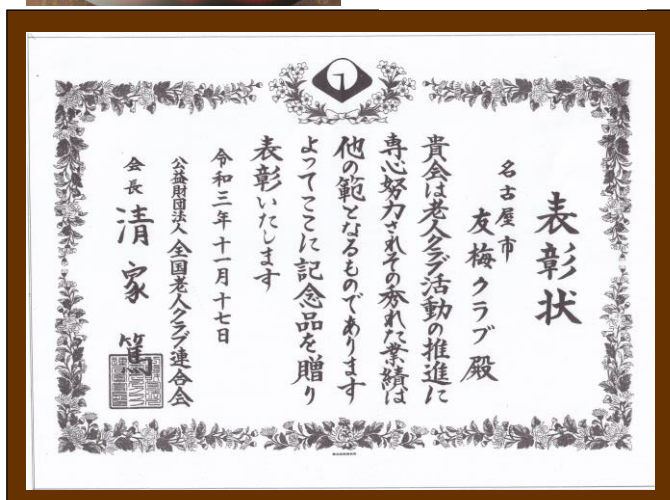 表彰状
名古屋市
友梅クラブ殿
貴会は老人クラブ活動の推進に
専心努力されその秀れた業績は
他の範となるものであります
よってここに記念品を贈り
表彰いたします
令和三年十一月十七日
公益財団法人 全国老人クラブ連合会
会長 清家 篤